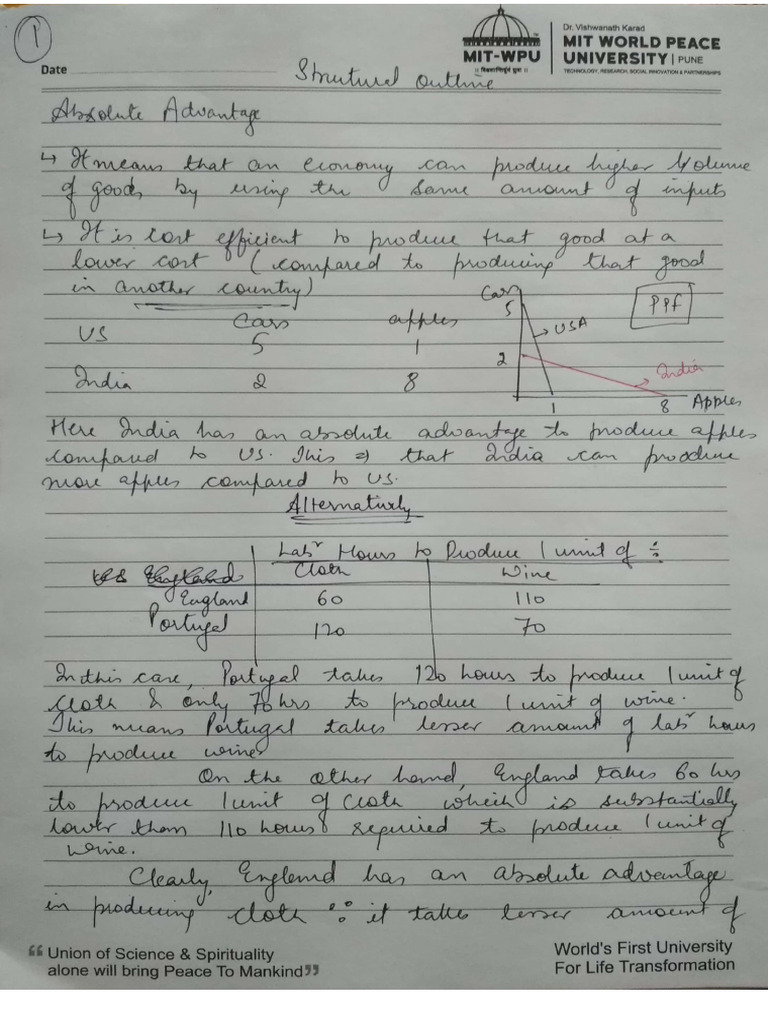 1
MIT-WPU
॥ विश्वशान्तिर्ध्रुवं ध्रुवा ॥
Dr. Vishwanath Karad
MIT WORLD PEACE
UNIVERSITY | PUNE
TECHNOLOGY, RESEARCH, SOCIAL INNOVATION & PARTNERSHIPS
Date
Strutural outline
Absolute Advantage
↳ It means that an economy can produce higher volume
of goods by using the same amount of inputs
↳ It is cost efficient to produce that good at a
lower cost (compared to producing that good
in another country)
Cars apples
US 5 1
India 2 8
Cars
5
2
USA
PPf
India
1 8 Apples
Here India has an absolute advantage to produce apples
compared to US. This ⇒ that India can produce
more apples compared to US.
Alternatively
Labr Hours to Produce 1 unit of ÷
England Cloth Wine
England 60 110
Portugal 120 70
In this case, Portugal takes 120 hours to produce 1 unit of
cloth & only 70 hrs to produce 1 unit of wine.
This means Portugal takes lesser amount of labr hours
to produce wine
On the other hand, England takes 60 hrs
to produce 1 unit of cloth which is substantially
lower than 110 hours required to produce 1 unit of
wine.
Clearly, England has an absolute advantage
in producing cloth ∵ it takes lesser amount of
“Union of Science & Spirituality
alone will bring Peace To Mankind”
World's First University
For Life Transformation